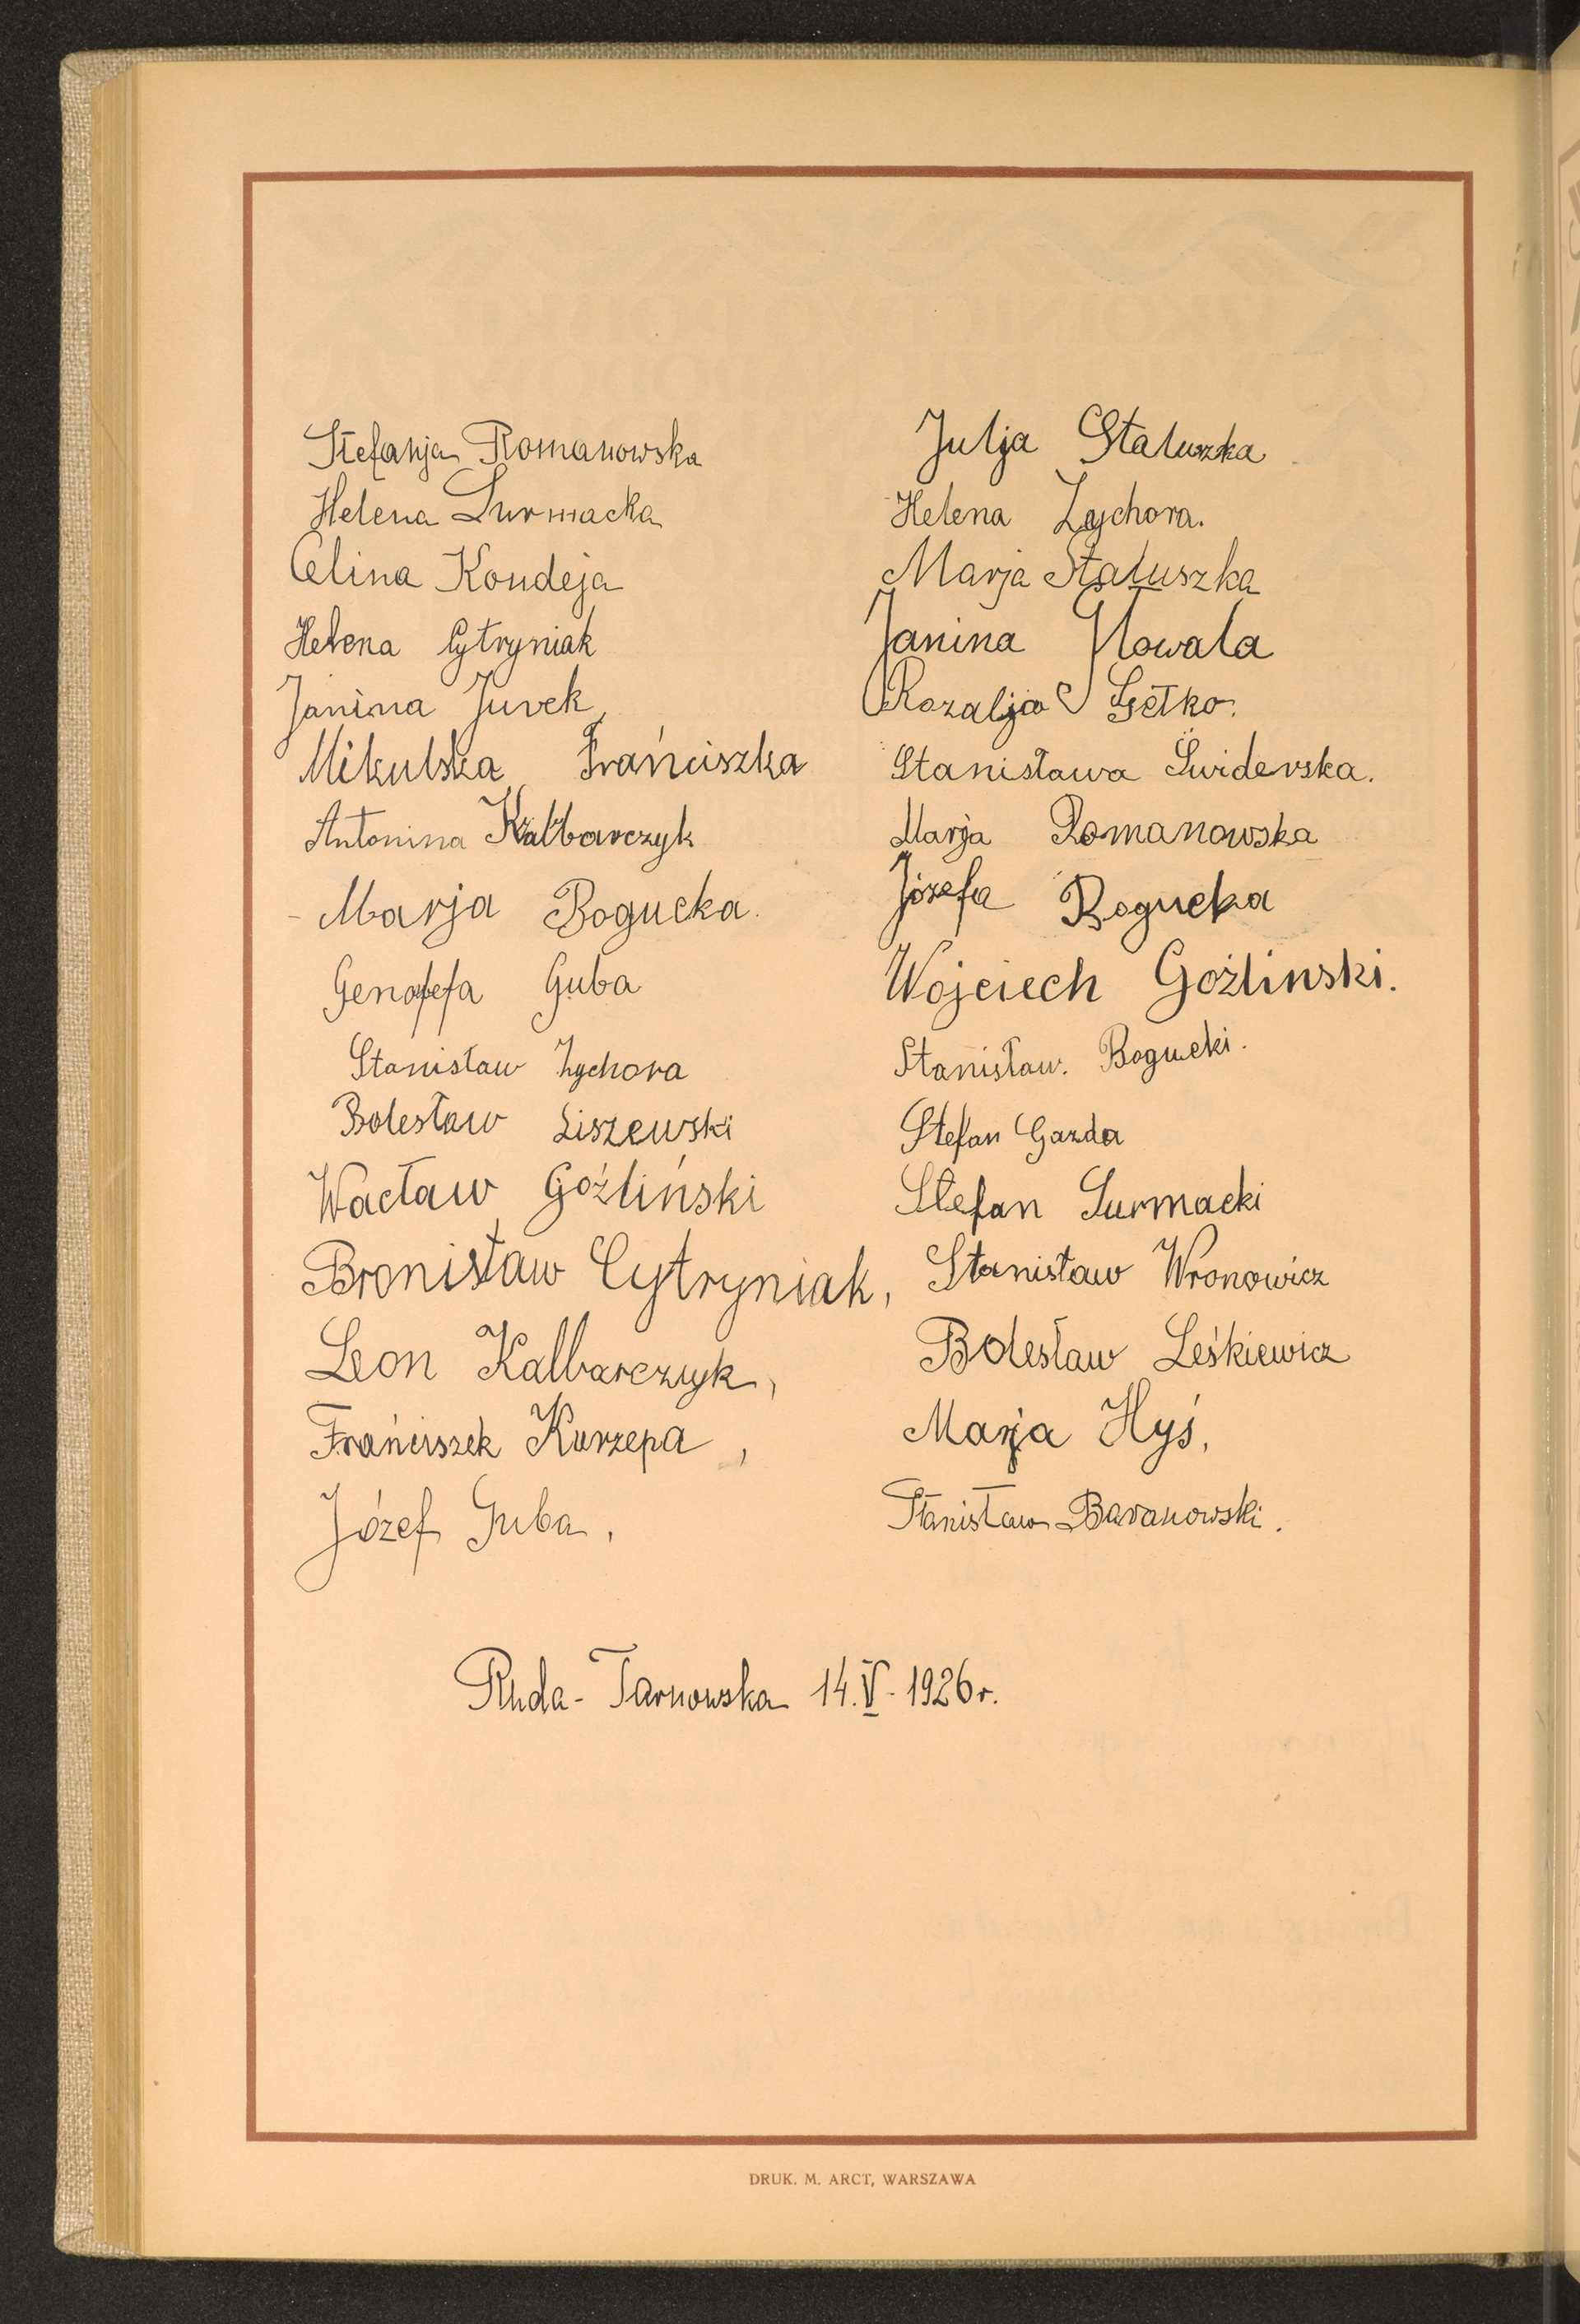 Stefanja Romanowska
Helena Surmacka
Celina Kondeja
Helena Cytryniak
Janina Jurek,
Mikulska Frańciszka
Antonina Kalbarczyk
Marja Bogucka.
Genofefa Guba
Stanisław Zychora
Bolesław Liszewski
Wacław Goźliński
Bronisław Cytryniak,
Leon Kalbarczyk,
Frańciszek Kurzepa,
Józef Guba,
Julja Staluszka
Helena Zychora.
Marja Staluszka
Janina Nowala
Rozalja Getko.
Stanisława Świderska.
Marja Romanowska
Józefa Bogucka
Wojciech Goźlinski.
Stanisław. Bogucki.
Stefan Gazda
Stefan Surmacki
Stanisław Wronowicz
Bolesław Leśkiewicz
Marja Hyś,
Stanisław Baranowski.
Ruda-Tarnowska 14.V.1926r.
DRUK. M. ARCT, WARSZAWA